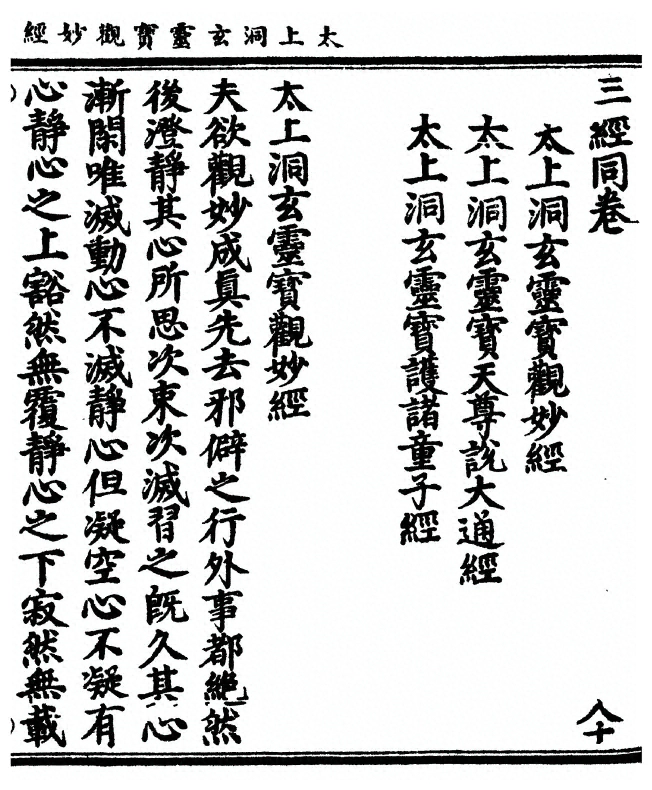 太上洞玄靈寶觀妙經
三經同卷
八十
太上洞玄靈寶觀妙經
太上洞玄靈寶天尊說大通經
太上洞玄靈寶護諸童子經
太上洞玄靈寶觀妙經
夫欲觀妙成眞先去邪僻之行外事都絕然
後澄靜其心所思次束次滅習之旣久其心
漸閑唯滅動心不滅靜心但凝空心不凝有
心靜心之上豁然無覆靜心之下寂然無載